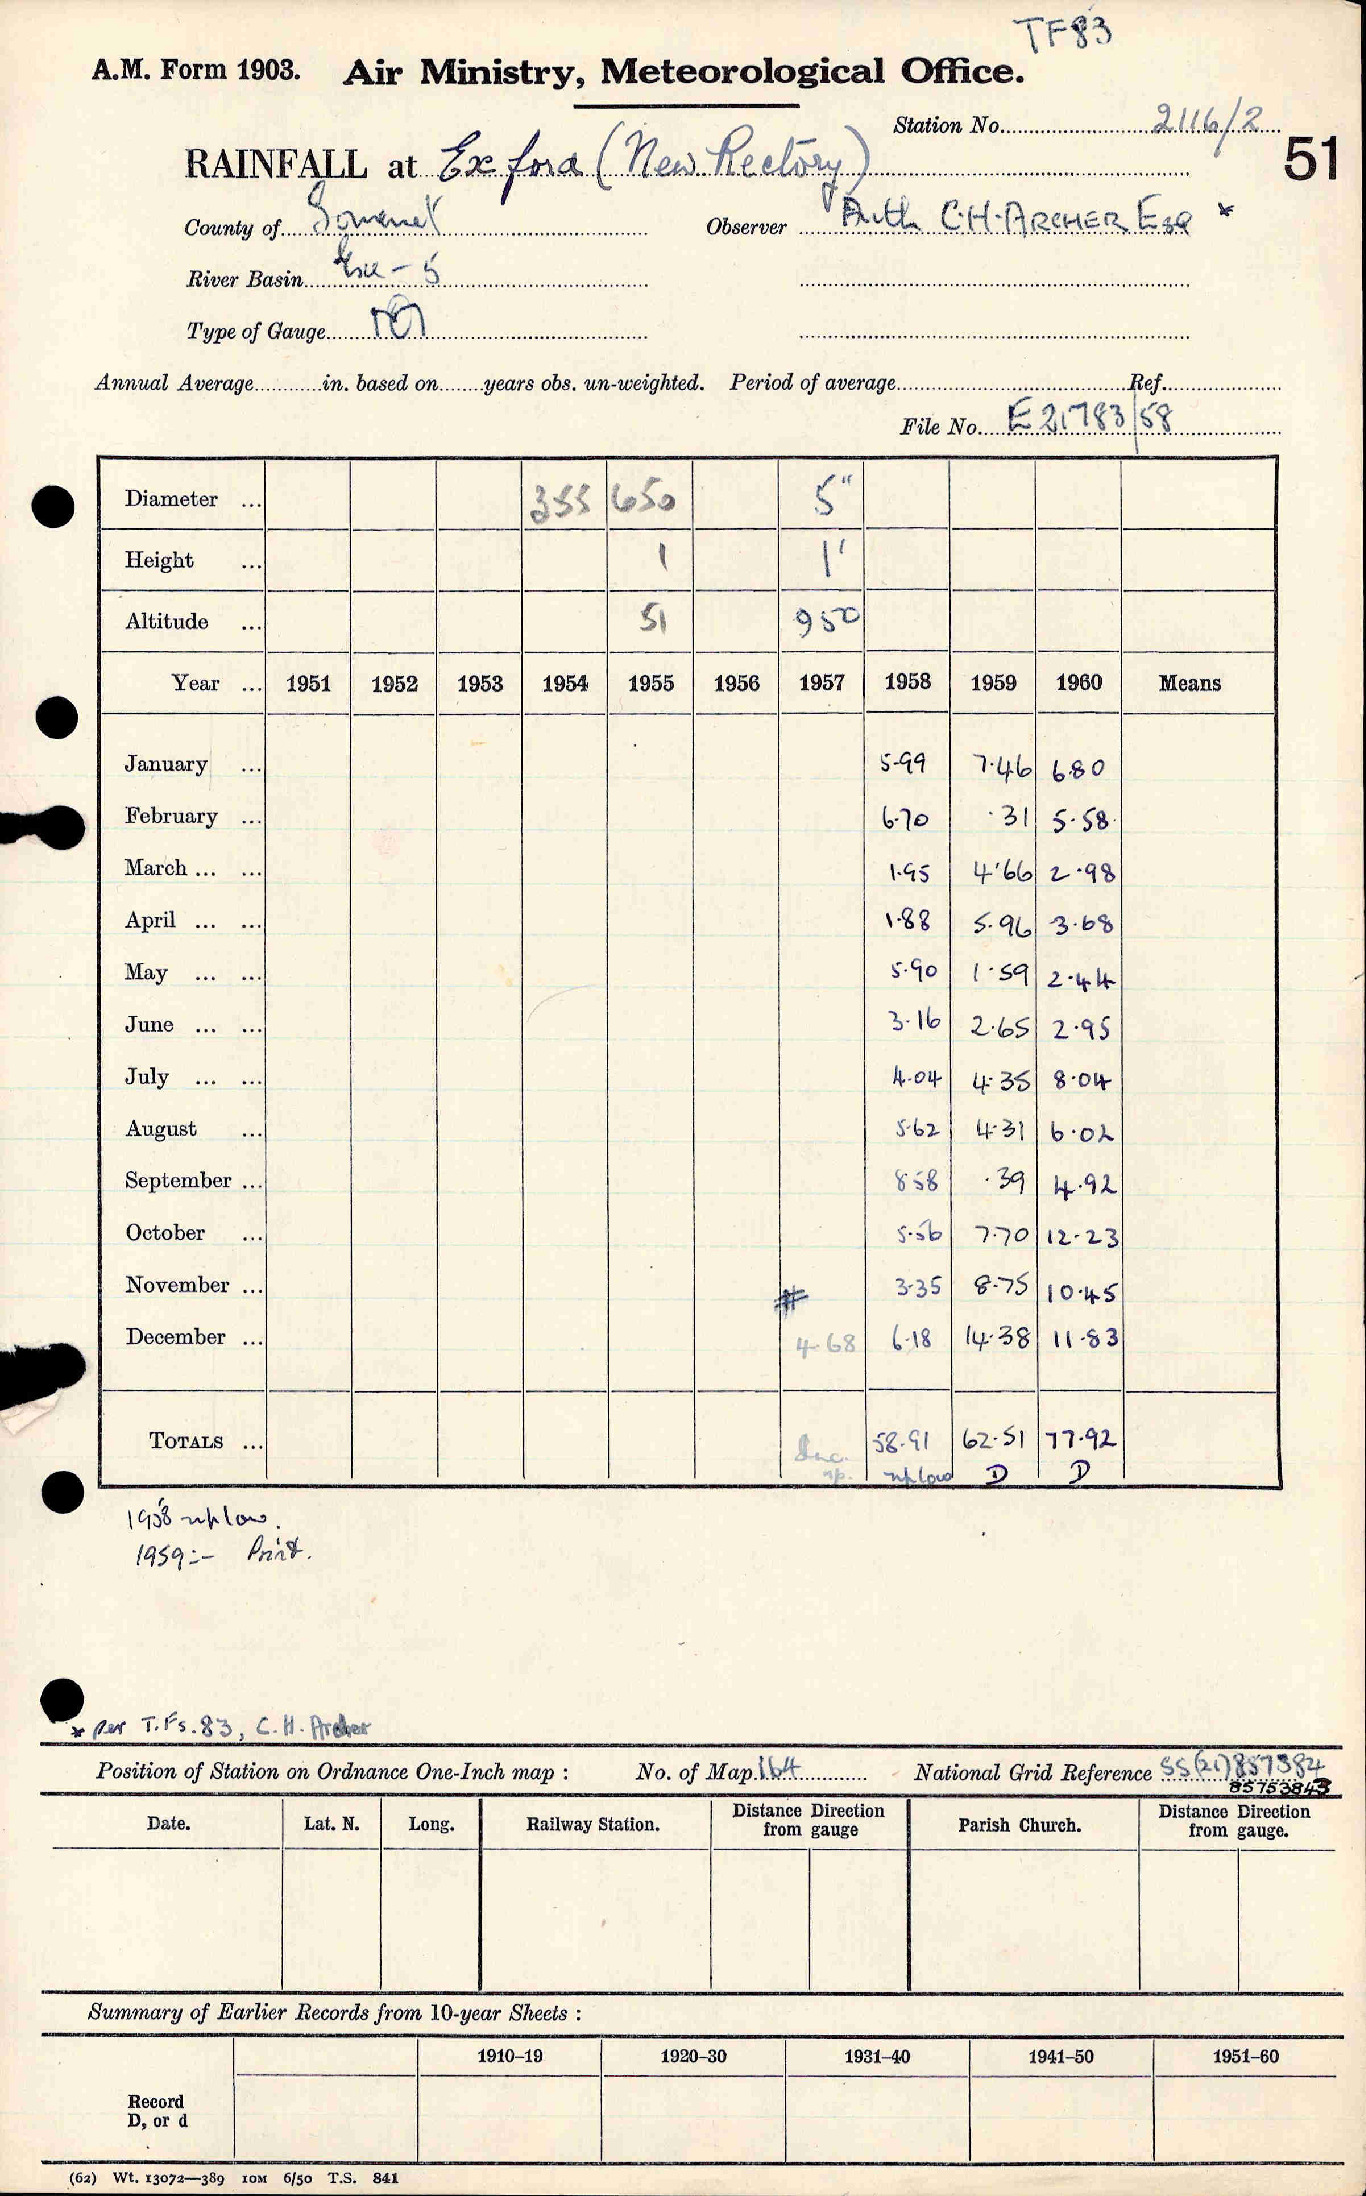 TF83
A.M. Form 1903. Air Ministry, Meteorological Office.
Station No. 2116/2
51
RAINFALL at Exford (New Rectory)
County of Somerset Observer Auth C.H. ARCHER Esq *
River Basin Exe - 5
Type of Gauge
Annual Average in. based on years obs. un-weighted. Period of average Ref.
File No. E21783/58
Diameter ... 355 650 5"
Height ... 1 1'
Altitude ... 51 950
Year ... 1951 1952 1953 1954 1955 1956 1957 1958 1959 1960 Means
January ... 5.99 7.46 6.80
February ... 6.70 .31 5.58
March ... ... 1.95 4.66 2.98
April ... ... 1.88 5.96 3.68
May ... ... 5.90 1.59 2.44
June ... ... 3.16 2.65 2.95
July ... ... 4.04 4.35 8.04
August ... 5.62 4.31 6.02
September ... 8.58 .39 4.92
October ... 5.56 7.70 12.23
November ... # 3.35 8.75 10.45
December ... 4.68 6.18 14.38 11.83
TOTALS ... Inc. 58.91 62.51 77.92
np. np low D D
1958 np low.
1959:- Print.
* per T.Fs.83, C.H. Archer
Position of Station on Ordnance One-Inch map : No. of Map 164 National Grid Reference SS(21)857384
85753843
Date. Lat. N. Long. Railway Station. Distance Direction from gauge Parish Church. Distance Direction from gauge.
Summary of Earlier Records from 10-year Sheets :
1910–19 1920–30 1931–40 1941–50 1951–60
Record
D, or d
(62) Wt. 13072—389 10M 6/50 T.S. 841